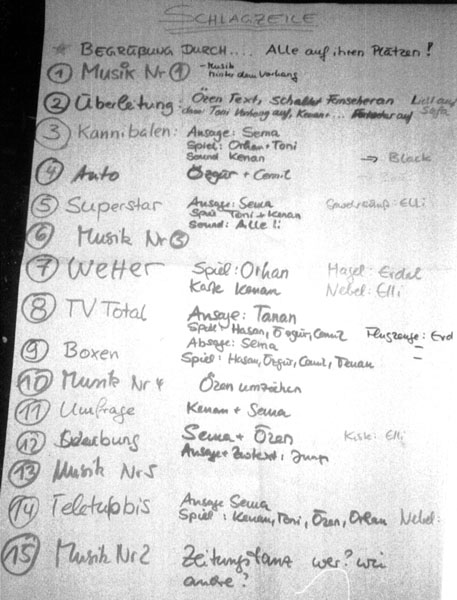 SCHLAGZEILE
* BEGRÜßUNG DURCH.... ALLE auf ihren PLÄTZEN!
① Musik Nr ① - Musik
hinter dem Vorhang
② Überleitung: Özen Text, schaltet Fernseher an
dann Toni Vorhang auf, Kenan + ... auf Sofa
③ Kannibalen: Ansage: Sema
Spiel: Orhan + Toni
Sound Kenan → Black
④ Auto Özgür + Cemil
⑤ Superstar Ansage: Sema Elli
Spiel Toni + Kenan
Sound: Alle!!
⑥ Musik Nr ③
⑦ Wetter Spiel: Orhan Hagel: Erdal
Kenan Nebel: Elli
⑧ TV Total Ansage: Tanan
Spiel: Hasan, Özgür, Cemil Flugzeuge: Erd
Absage: Sema
⑨ Boxen Spiel: Hasan, Özgür, Cemil, Tanan
⑩ Musik Nr 4 Özen umziehen
⑪ Umfrage Kenan + Sema
⑫ Sema + Özen Kiste: Elli
Ansage + Jump
⑬ Musik Nr 5
⑭ Teletubbis Ansage Sema
Spiel: Kenan, Toni, Özen, Orhan Nebel:
⑮ Musik Nr 2 Zeitungstanz wer? wie
andre?